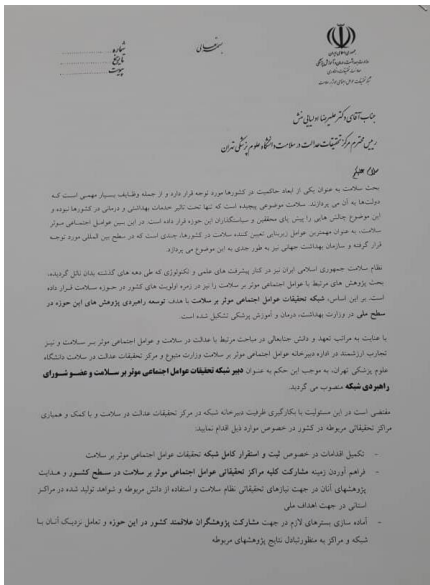 بسمه تعالی
جمهوری اسلامی ایران
وزارت بهداشت، درمان و آموزش پزشکی
معاونت تحقیقات و فناوری
شماره
تاریخ
پیوست
جناب آقای دکتر علیرضا اولیایی منش
رییس محترم مرکز تحقیقات عدالت در سلامت دانشگاه علوم پزشکی تهران
سلام علیکم
بحث سلامت به عنوان یکی از ابعاد حاکمیت در کشورها مورد توجه قرار دارد و از جمله وظایف بسیار مهمی است که
دولت‌ها به آن می پردازند. سلامت موضوعی پیچیده است که تنها تحت تاثیر خدمات بهداشتی و درمانی در کشورها نبوده و
این موضوع چالش هایی را پیش پای محققین و سیاستگذاران این حوزه قرار داده است. در این بین عوامل اجتماعی موثر
سلامت، به عنوان مهمترین عوامل زیربنایی تعیین کننده سلامت در کشورها، جدی است که در سطح بین المللی مورد توجه
قرار گرفته و سازمان بهداشت جهانی نیز به طور جدی به این موضوع می پردازد.
نظام سلامت جمهوری اسلامی ایران نیز در کنار پیشرفت های علمی و تکنولوژی که طی دهه های گذشته بدان نائل گردیده،
بحث پژوهش های مرتبط با عوامل اجتماعی موثر بر سلامت را نیز در زمره اولویت های کشور در حوزه سلامت قرار داده
است. بر این اساس، شبکه تحقیقات عوامل اجتماعی موثر بر سلامت با هدف توسعه راهبردی پژوهش های این حوزه در
سطح ملی در وزارت بهداشت، درمان و آموزش پزشکی تشکیل شده است.
با عنایت به مراتب تعهد و دانش جنابعالی در مباحث مرتبط با عدالت در سلامت و عوامل اجتماعی موثر بر سلامت و نیز
تجارب ارزشمند در اداره دبیرخانه عوامل اجتماعی موثر بر سلامت وزارت متبوع و مرکز تحقیقات عدالت در سلامت دانشگاه
علوم پزشکی تهران، به موجب این حکم به عنوان دبیر شبکه تحقیقات عوامل اجتماعی موثر بر سلامت و عضو شورای
راهبردی شبکه منصوب می گردید.
مقتضی است در این مسئولیت با بکارگیری ظرفیت دبیرخانه شبکه در مرکز تحقیقات عدالت در سلامت و با کمک و همیاری
مراکز تحقیقاتی مربوطه در کشور در خصوص موارد ذیل اقدام نمایید:
- تکمیل اقدامات در خصوص ثبت و استقرار کامل شبکه تحقیقات عوامل اجتماعی موثر بر سلامت
- فراهم آوردن زمینه مشارکت کلیه مراکز تحقیقاتی عوامل اجتماعی موثر بر سلامت در سطح کشور و هدایت
پژوهشهای آنان در جهت نیازهای تحقیقاتی نظام سلامت و استفاده از دانش مربوطه و شواهد تولید شده در مراکز
استانی در جهت اهداف ملی
- آماده سازی بسترهای لازم در جهت مشارکت پژوهشگران علاقمند کشور در این حوزه و تعامل نزدیک آنان با
شبکه و مراکز به منظور تبادل نتایج پژوهشهای مربوطه